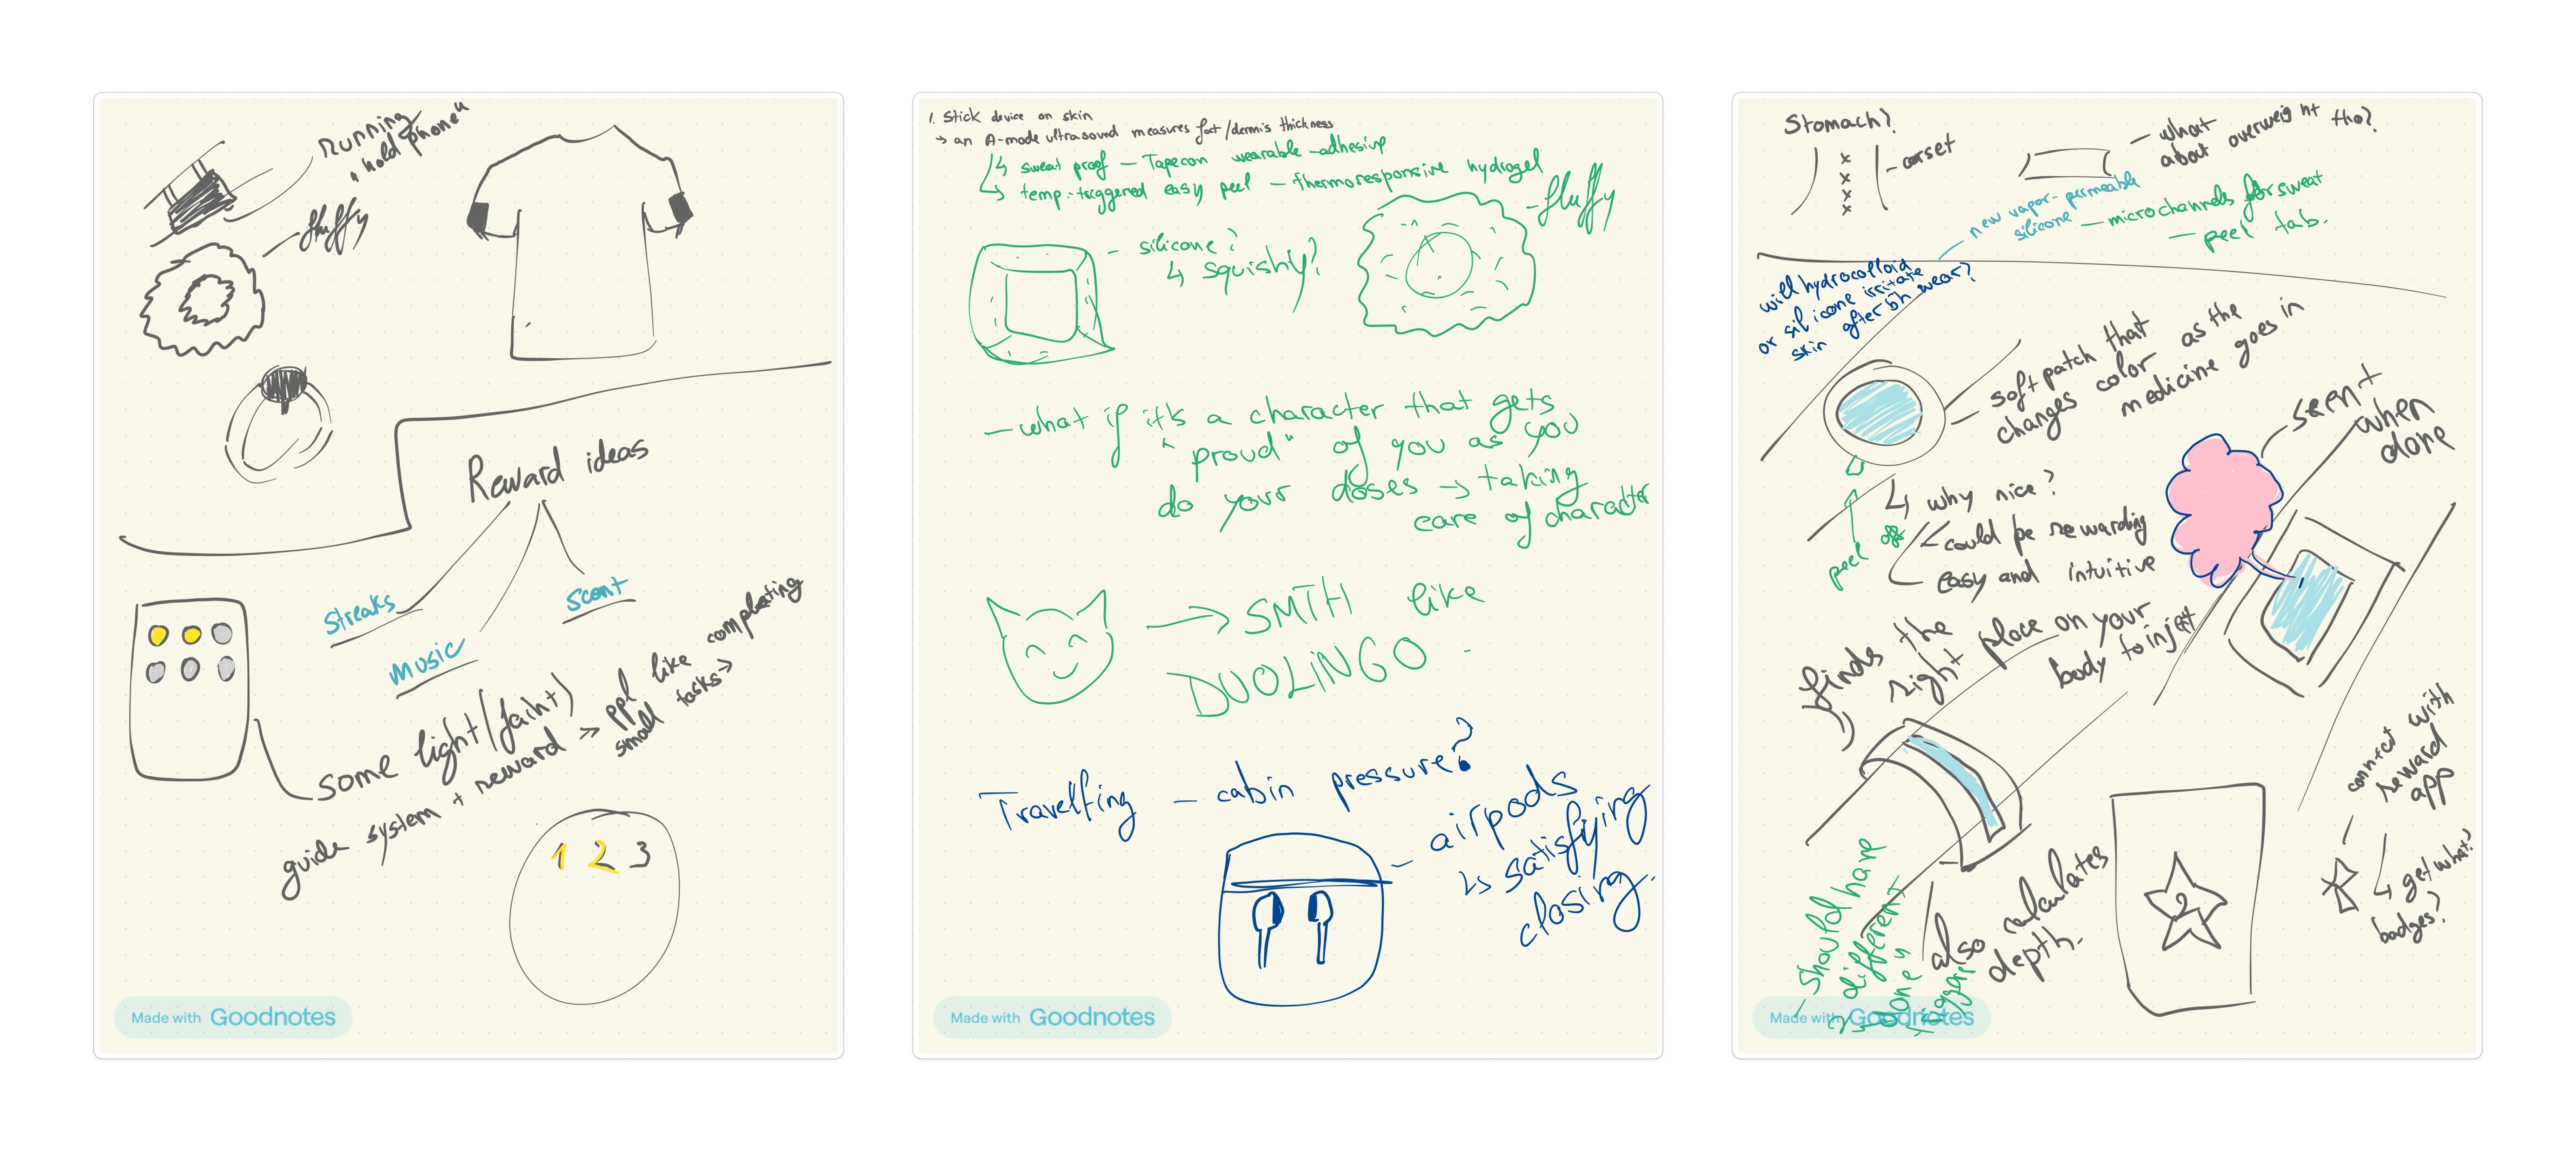 Running
"hold phone"
fluffy
Reward ideas
Streaks
Music
Scent
some light (faint)
guide system + reward >> ppl like completing
small tasks >>
1 2 3
Made with Goodnotes
1. Stick device on skin
→ an A-mode ultrasound measures fat/dermis thickness
↳ sweat proof — Tapecon wearable adhesive
↳ temp-triggered easy peel — thermoresponsive hydrogel
- fluffy
- silicone?
↳ squishy?
- what if it's a character that gets
"proud" of you as you
do your doses → taking
care of character
→ SMTH like
DUOLINGO
Travelling - cabin pressure?
- airpods
↳ satisfying
closing.
Made with Goodnotes
Stomach?
- corset
- what
about overweight tho?
- new vapor-permeable
silicone
- microchannels for sweat
- peel tab.
will hydrocolloid
or silicone irritate
skin after 5h wear?
soft patch that
changes color as the
medicine goes in
scent
when
done
↳ why nice?
could be rewarding
easy and intuitive
peel
finds the
right place on your
body to inject
also calculates
depth.
- Should have
2 different
2
connect with
reward
app
↳ get what?
badges?
Made with Goodnotes